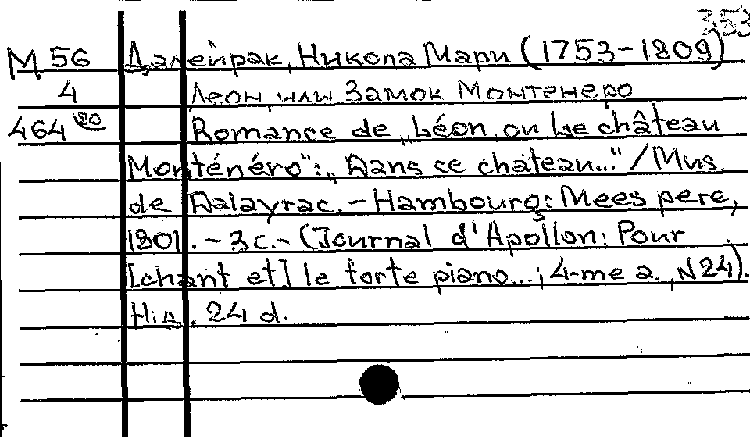 353
М 56 Далейрак, Никола Мари (1753-1809)
4 Леон, или Замок Монтенеро
464 20 Romance de „Léon, ou Le château
Monténéro": „Dans ce chateau..." / Mus
de Dalayrac. - Hambourg: Mees pere,
1801. - 3 с. - (Journal d'Apollon: Pour
[chant et] le forte piano...; 4-me a., N24).
Н.д. 24 d.